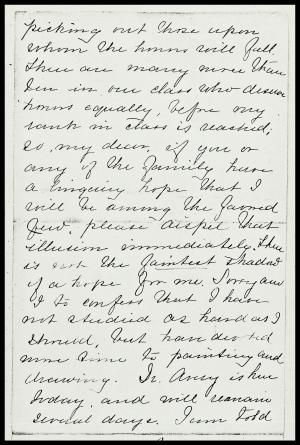 picking out those upon
whom the honors will fall.
There are many more than
ten in our class who deserve
honors equally, before my
rank in class is reached;
so, my dear, if you or
any of the family have
a lingering hope that I
will be among the favored
few, please dispel that
illusion immediately. There
is not the faintest shadow
of a hope for me. Sorry am
I to confess that I have
not studied as hard as I
should, but have devoted
more time to painting and
drawing. Dr. Avery is here
today, and will remain
several days. I am told